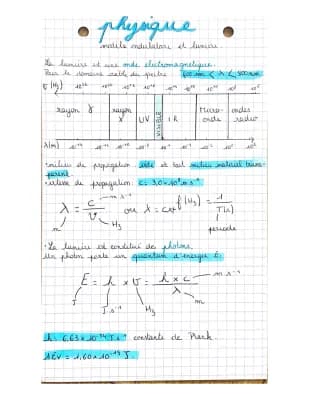 physique
modèle ondulatoire et lumière
La lumière est une onde électromagnétique.
Pour le domaine visible du spectre 400 nm < λ < 800 nm
ν (Hz)
rayon γ
rayon X
UV
VISIBLE
IR
Micro-onde
ondes radio
λ(m)
milieu de propagation : vide et tout milieu matériel transparent.
vitesse de propagation: c = 3,0 × 10⁸ m.s⁻¹
λ = c/ν
m.s⁻¹
m
Hz
ou λ = c×T
f(Hz) = 1/T(s)
période
La lumière est constitué de photons.
Un photon porte un quantum d'énergie E:
E = h × ν = h × c / λ
m.s⁻¹
J
J.s⁻¹
Hz
m
h: 6,63 × 10⁻³⁴ J.s⁻¹ constante de Planck.
1 eV = 1,60 × 10⁻¹⁹ J.